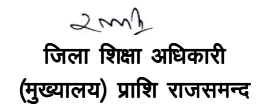 जिला शिक्षा अधिकारी
(मुख्यालय) प्राशि राजसमन्द